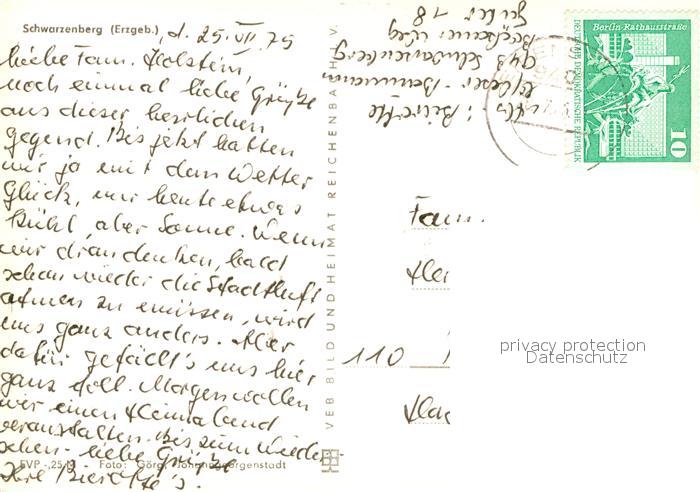 Schwarzenberg (Erzgeb.), d. 25. VII. 75
liebe Fam. Holstein,
noch einmal liebe Grüße
aus dieser herrlichen
Gegend. Bis jetzt hatten
wir ja mit dem Wetter
Glück, nur heute etwas
kühl, aber Sonne. Wenn
wir dran denken, bald
schon wieder die Stadtluft
atmen zu müssen, wird
uns ganz anders. Aber
dafür gefällt's uns hier
ganz toll. Morgen wollen
wir einen Heimabend
veranstalten. Bis zum Wieder-
sehen - liebe Grüße
Ihre
EVP -,25 M - Foto: Görg, Johanngeorgenstadt
VEB BILD UND HEIMAT REICHENBACH I. V.
943 Schwarzenberg
18
Berlin-Rathausstraße
DEUTSCHE DEMOKRATISCHE REPUBLIK
10
Fam.
110
privacy protection
Datenschutz